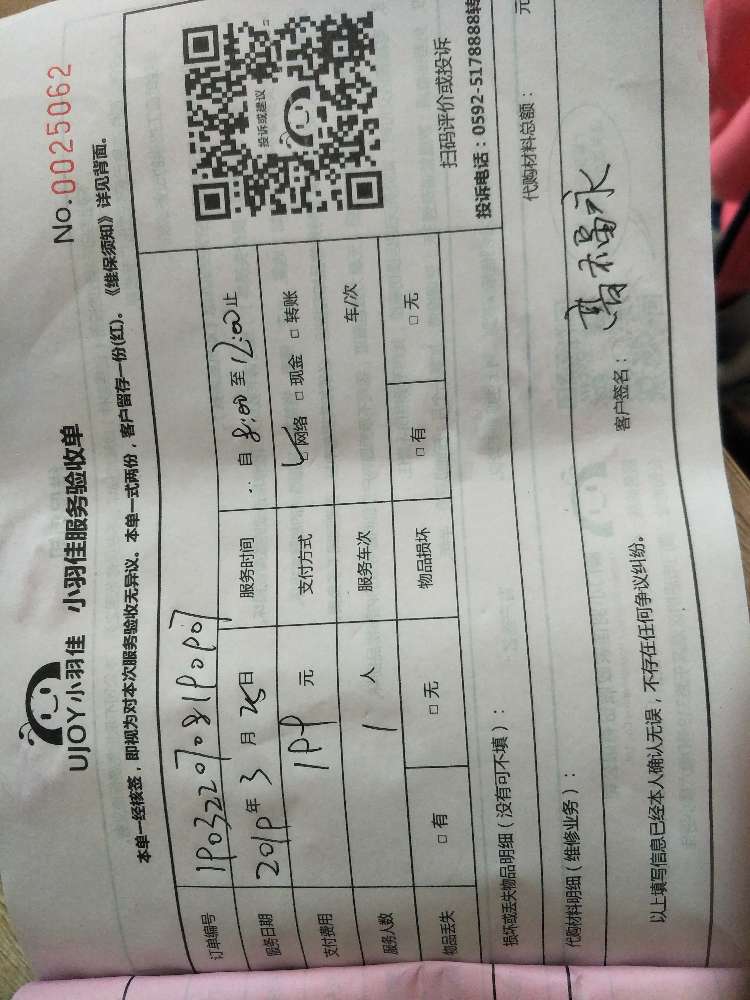 No.0025062
UJOY小羽佳 小羽佳服务验收单
本单一经核签，即视为对本次服务验收无异议。本单一式两份，客户留存一份(红)。《维保须知》详见背面。
订单编号 190322070819090
服务日期 2019年3月25日 服务时间 自8:00至12:00止
支付费用 199元 支付方式 ☑网络 □现金 □转账
服务人数 1人 服务车次 车/次
物品丢失 □有 □无 物品损坏 □有 □无
投诉或建议
扫码评价或投诉
投诉电话：0592-5178888转
损坏或丢失物品明细（没有可不填）：
代购材料明细（维修业务）： 代购材料总额： 元
以上填写信息已经本人确认无误，不存在任何争议纠纷。
客户签名： 福永